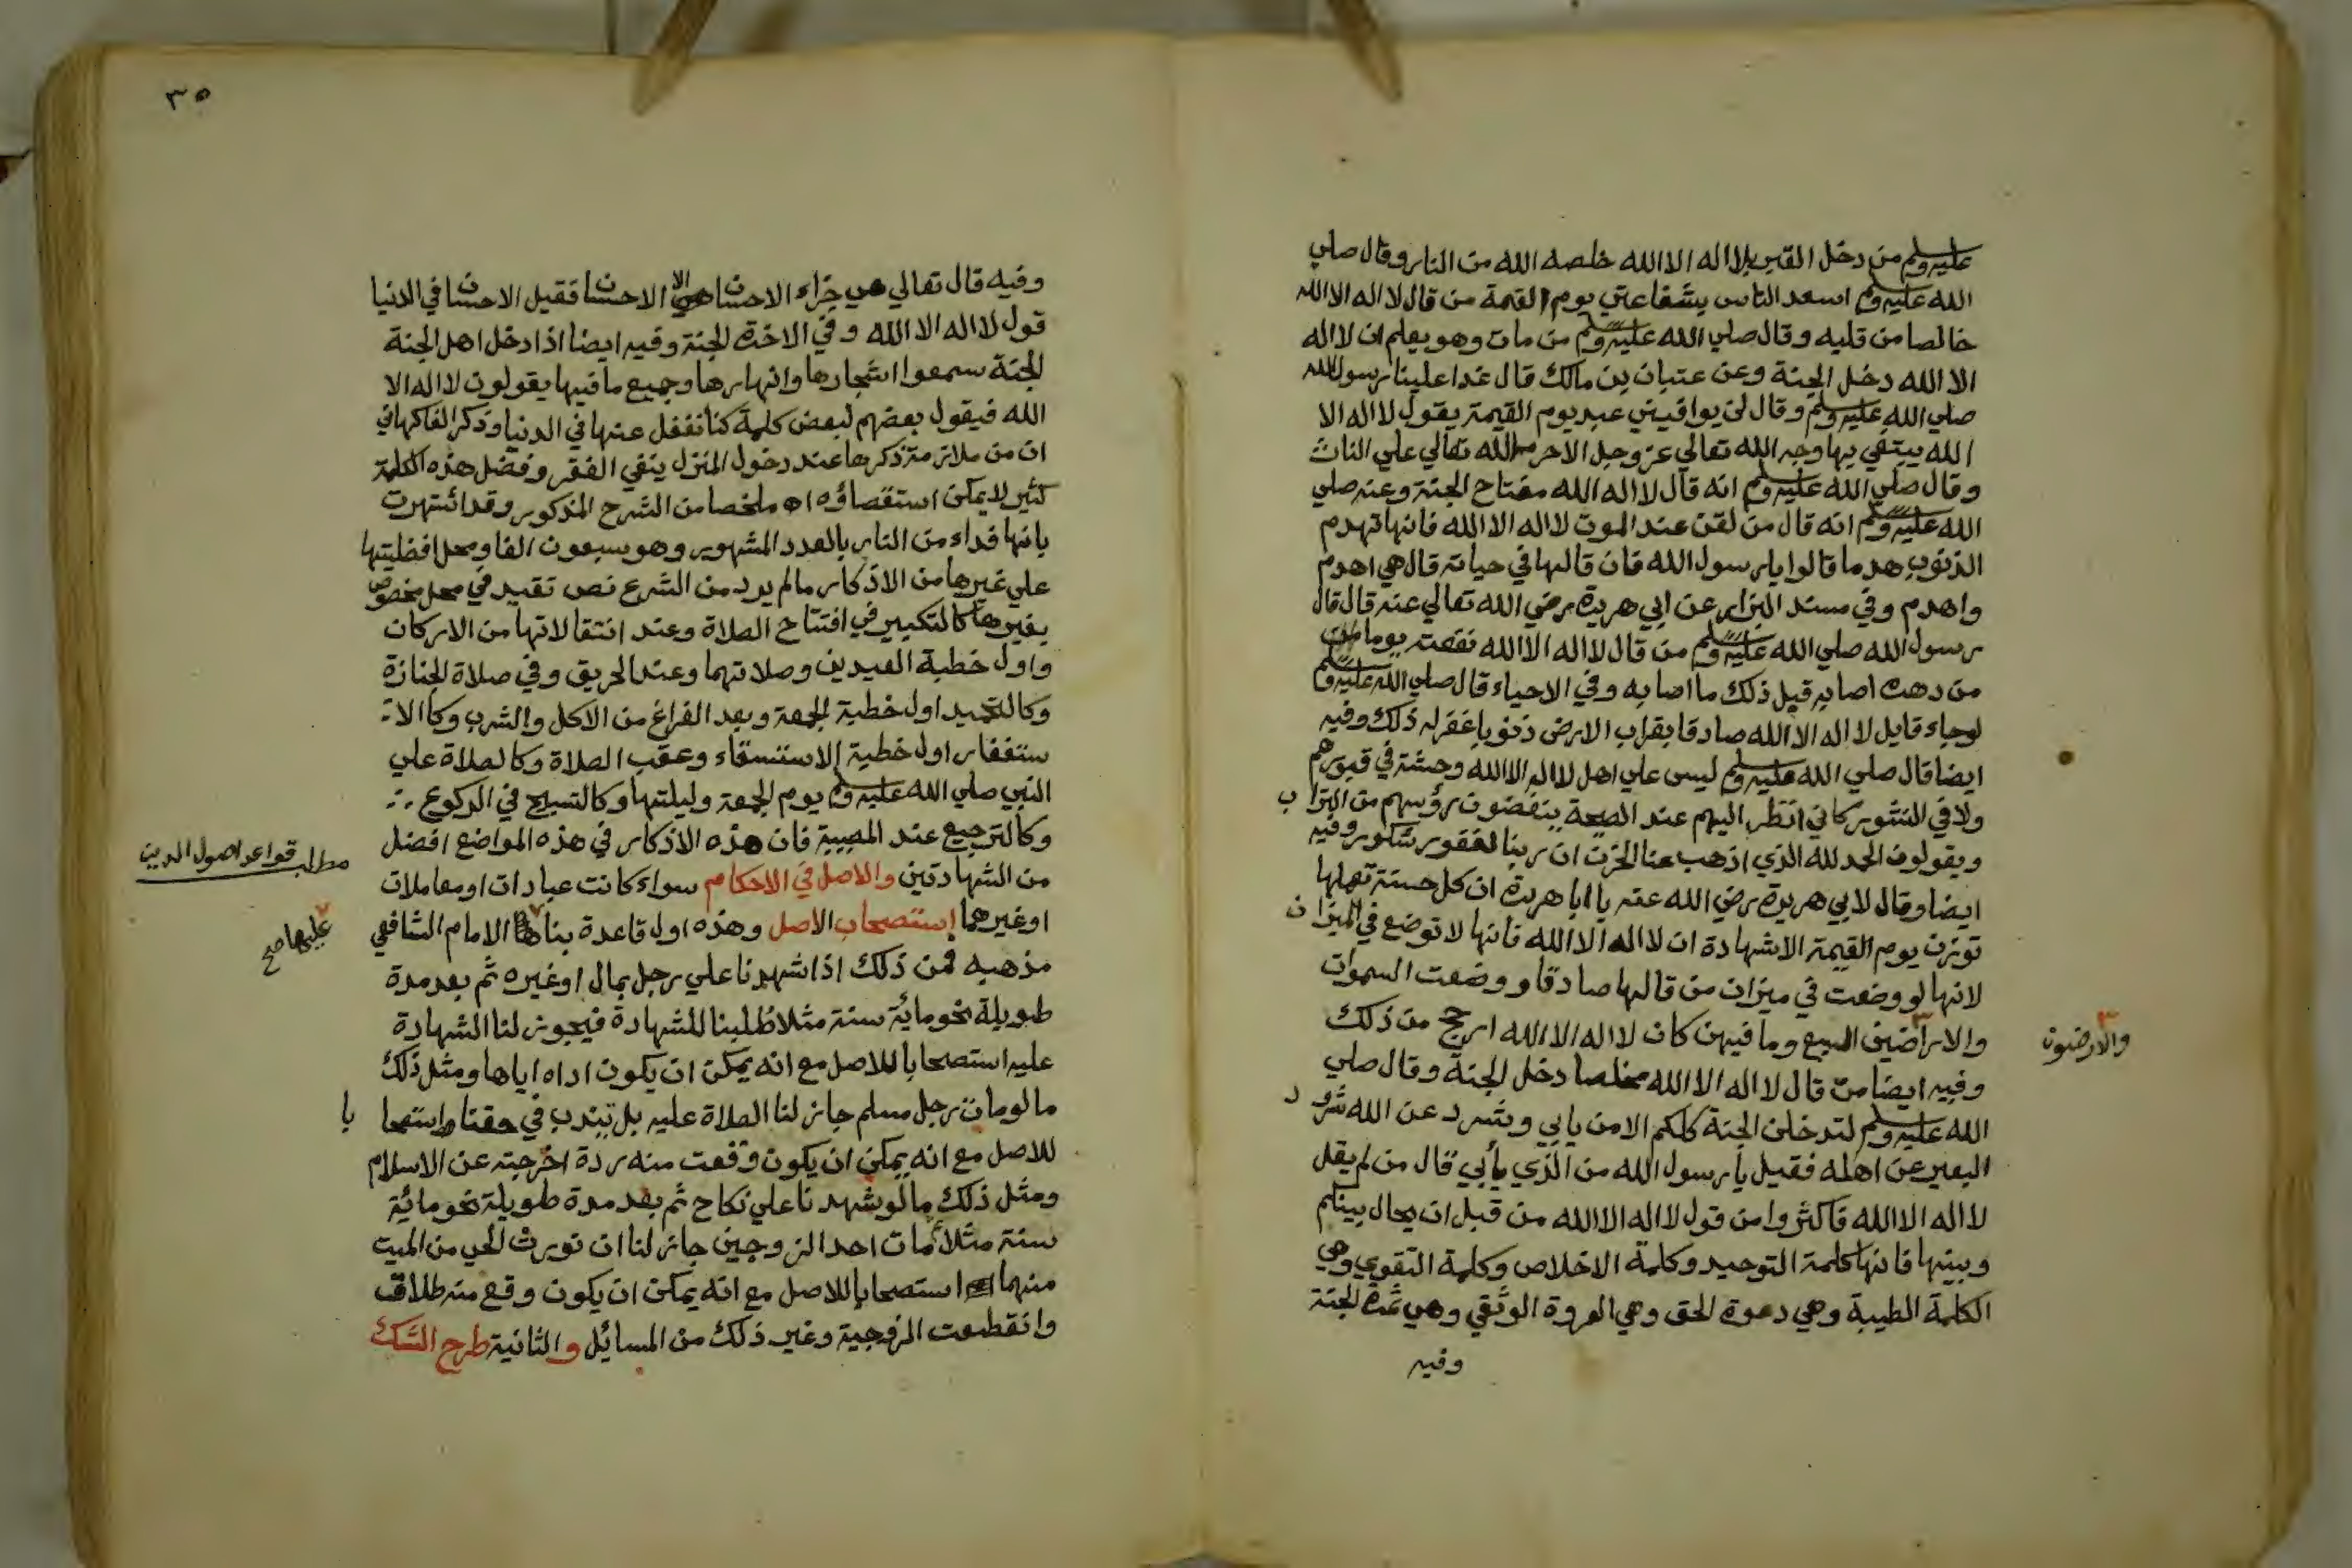 عليه وسلم من دخل القبر بلا اله الا الله خلصه الله من النار وقال صلي
الله عليه وسلم اسعد الناس بشفاعتي يوم القيمة من قال لا اله الا الله
خالصا من قلبه وقال صلي الله عليه وسلم من مات وهو يعلم ان لا اله
الا الله دخل الجنة وعن عتبان بن مالك قال غدا علينا رسول الله
صلي الله عليه وسلم وقال لن يوافيني عبد يوم القيمة يقول لا اله الا
الله يبتغي بها وجه الله تعالي عز وجل الا حرم الله تعالي علي النار
وقال صلي الله عليه وسلم انه قال لا اله الله مفتاح الجنة وعنه صلي
الله عليه وسلم انه قال من لقن عند الموت لا اله الا الله فانها تهدم
الذنوب هدما قالوا يا رسول الله فان قالها في حياته قال هي اهدم
واهدم وفي مسند البزار عن ابي هريرة رضي الله تعالي عنه قال قال
رسول الله صلي الله عليه وسلم من قال لا اله الا الله نفعته يوما من
من دهره اصابه قبل ذلك ما اصابه وفي الاحياء قال صلي الله عليه وسلم
لو جاء قايل لا اله الا الله صادقا بقراب الارض ذنوبا غفر له ذلك وفيه
ايضا قال صلي الله عليه وسلم ليس علي اهل لا اله الا الله وحشة في قبورهم
ولا في النشور كاني انظر اليهم عند الصيحة ينفضون رؤسهم من التراب
ويقولون الحمد لله الذي اذهب عنا الحزن ان ربنا لغفور شكور وفيه
ايضا وقال لابي هريرة رضي الله عنه يا ابا هريرة ان كل حسنة تعملها
توزن يوم القيمة الا شهادة ان لا اله الا الله فانها لا توضع في الميزان
لانها لو وضعت في ميزان من قالها صادقا ووضعت السموات
والاراضين السبع وما فيهن كان لا اله الا الله ارجح من ذلك
والارضون
وفيه ايضا من قال لا اله الا الله مخلصا دخل الجنة وقال صلي
الله عليه وسلم لتدخلن الجنة كلكم الا من يابي وشرد عن الله شرود
البعير عن اهله فقيل يا رسول الله من الذي يأبي قال من لم يقل
لا اله الا الله فاكثروا من قول لا اله الا الله من قبل ان يحال بينكم
وبينها فانها كلمة التوحيد وكلمة الاخلاص وكلمة التقوي وهي
الكلمة الطيبة وهي دعوة الحق وهي العروة الوثقي وهي ثمن الجنة
وفيه
٣٥
وفيه قال تعالي هل جزاء الاحسان الا الاحسان فقيل الاحسان في الدنيا
قول لا اله الا الله وفي الاخرة الجنة وفيه ايضا اذا دخل اهل الجنة
الجنة سمعوا اشجارها وانهارها وجميع ما فيها يقولون لا اله الا
الله فيقول بعضهم لبعض كلمة كنا نغفل عنها في الدنيا وذكر الفاكهاني
ان من ملازمة ذكرها عند دخول المنزل ينفي الفقر وفضل هذه الكلمة
كثير لا يمكن استقصاؤه اه ملخصا من الشرح المذكور وقد اشتهرت
بانها فداء من النار بالعدد المشهور وهو سبعون الفا ومحل افضليتها
علي غيرها من الاذكار ما لم يرد من الشرع نص تقيد في محل مخصوص
بغيرها كالتكبير في افتتاح الصلاة وعند انتقالاتها من الاركان
واول خطبة العيدين وصلاتهما وعند الحريق وفي صلاة الجنازة
وكالتحميد اول خطبة الجمعة وبعد الفراغ من الاكل والشرب وكالا
ستغفار اول خطبة الاستسقاء وعقب الصلاة وكالصلاة علي
النبي صلي الله عليه وسلم يوم الجمعة وليلتها وكالتسبيح في الركوع
وكالترجيع عند المصيبة فان هذه الاذكار في هذه المواضع افضل
مطلب قواعد اصول الدين
من الشهادتين والاصل في الاحكام سواء كانت عبادات او معاملات
او غيرهما استصحاب الاصل وهذه اول قاعدة بنا الامام الشافعي
عليها صح
مذهبه فمن ذلك اذا شهدنا علي رجل بمال او غيره ثم بعد مدة
طويلة نحو مائة سنة مثلا طلبنا للشهادة فيجوز لنا الشهادة
عليه استصحابا للاصل مع انه يمكن ان يكون اداه اياها ومثل ذلك
ما لو مات رجل مسلم جاز لنا الصلاة عليه بل تندب في حقنا استصحابا
للاصل مع انه يمكن ان يكون وقعت منه ردة اخرجته عن الاسلام
ومثل ذلك ما لو شهدنا علي نكاح ثم بعد مدة طويلة نحو مائة
سنة مثلا مات احد الزوجين جاز لنا ان نورث الحي من الميت
منهما استصحابا للاصل مع انه يمكن ان يكون وقع منه طلاق
وانقطعت الزوجية وغير ذلك من المسائل والثانية طرح الشك